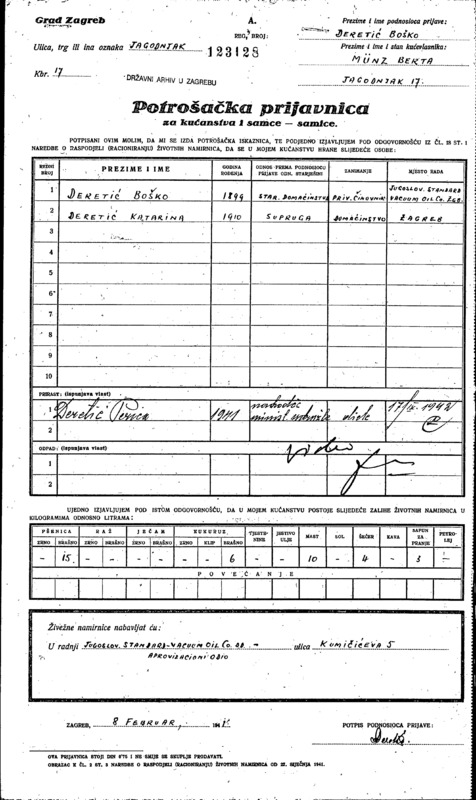 Grad Zagreb
A.
REG. BROJ:
123128
Prezime i ime podnosioca prijave:
DERETIĆ BOŠKO
Ulica, trg ili ina oznaka JAGODNJAK
Prezime i ime i stan kućevlasnika:
MÜNZ BERTA
Kbr. 17
JAGODNJAK 17.
DRŽAVNI ARHIV U ZAGREBU
Potrošačka prijavnica
za kućanstva i samce — samice.
POTPISANI OVIM MOLIM, DA MI SE IZDA POTROŠAČKA ISKAZNICA, TE PODJEDNO IZJAVLJUJEM POD ODGOVORNOŠĆU IZ ČL. 18 ST. 1
NAREDBE O RASPODJELI (RACIONIRANJU) ŽIVOTNIH NAMIRNICA, DA SE U MOJEM KUĆANSTVU HRANE SLIJEDEĆE OSOBE:
REDNI BROJ PREZIME I IME GODINA ROĐENJA ODNOS PREMA PODNOSIOCU PRIJAVE ODN. STARJEŠINI ZANIMANJE MJESTO RADA
1 DERETIĆ BOŠKO 1899 STAR. DOMAĆINSTVA PRIV. ČINOVNIK JUGOSLOV. STANDARD VACUUM OIL CO. ZGB.
2 DERETIĆ KATARINA 1910 SUPRUGA DOMAĆINSTVO ZAGREB
3
4
5
6
7
8
9
10
PRIRAST: (ispunjava vlast)
1 Deretić 1941 dijete 17/IX. 1942
2
OTPAD: (ispunjava vlast)
1
2
UJEDNO IZJAVLJUJEM POD ISTOM ODGOVORNOŠĆU, DA U MOJEM KUĆANSTVU POSTOJE SLIJEDEĆE ZALIHE ŽIVOTNIH NAMIRNICA U
KILOGRAMIMA ODNOSNO LITRAMA:
PŠENICA RAŽ JEČAM KUKURUZ TJESTENINE JESTIVO ULJE MAST SOL ŠEĆER KAVA SAPUN ZA PRANJE PETROLEJ
ZRNO BRAŠNO ZRNO BRAŠNO ZRNO BRAŠNO ZRNO KLIP BRAŠNO
- 15 - - - - - - 6 - - 10 - 4 - 3 -
POVEĆANJE
Živežne namirnice nabavljat ću:
U radnji JUGOSLOV. STANDARD-VACUUM OIL CO. DD. - ulica KUMIČIĆEVA 5
APROVIZACIONI ODIO
ZAGREB, 8 FEBRUAR, 194
POTPIS PODNOSIOCA PRIJAVE:
OVA PRIJAVNICA STOJI DIN 0'75 I NE SMIJE SE SKUPLJE PRODAVATI.
OBRAZAC K ČL. 2 ST. 3 NAREDBE O RASPODJELI (RACIONIRANJU) ŽIVOTNIH NAMIRNICA OD 22. SIJEČNJA 1941.